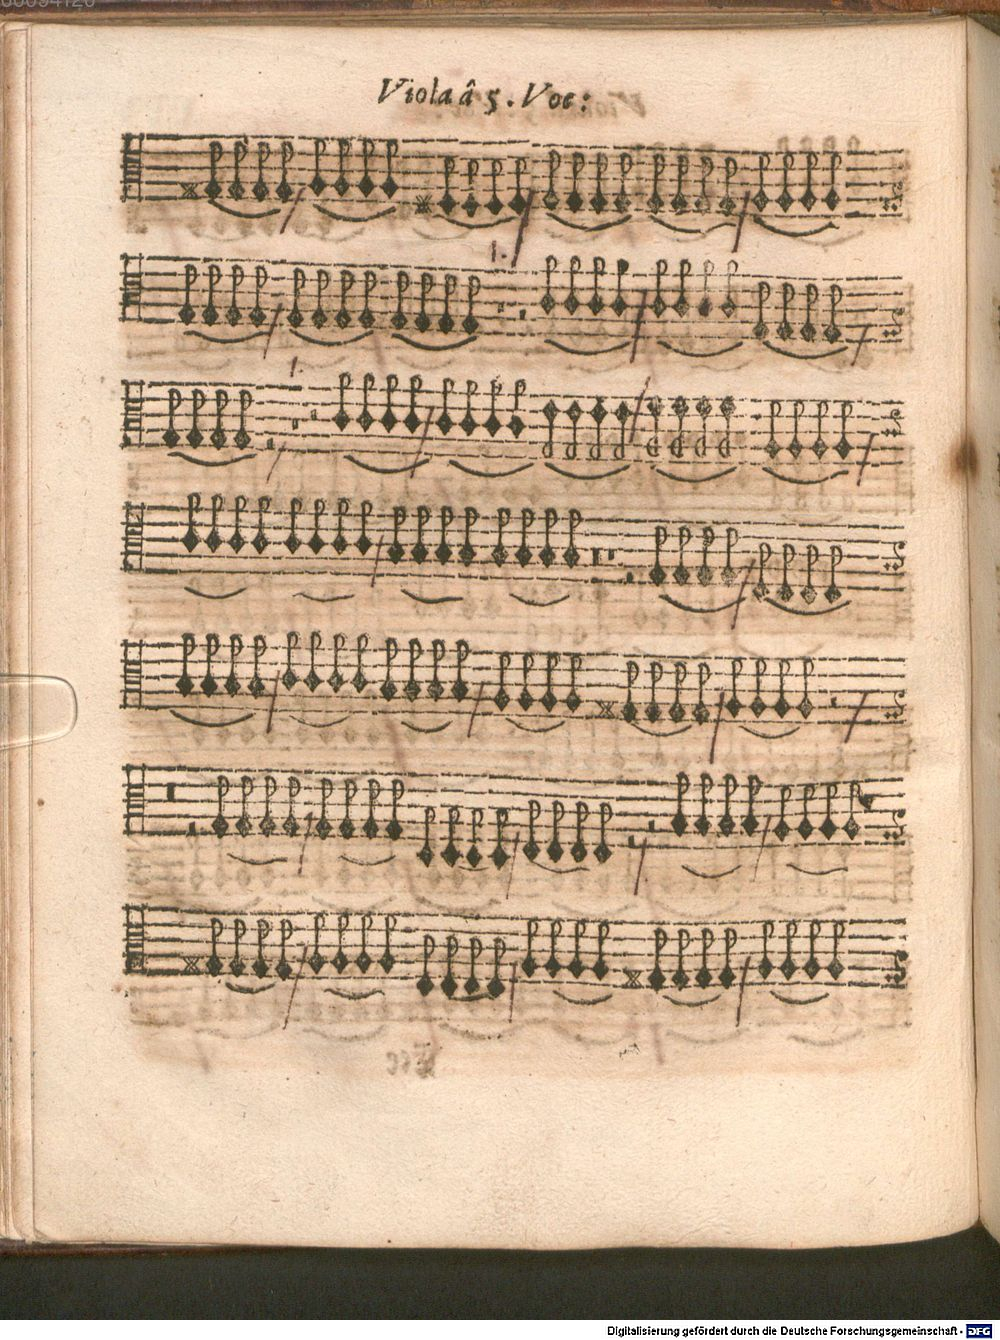 Viola â 5. Voc:
1.
1.
Digitalisierung gefördert durch die Deutsche Forschungsgemeinschaft - DFG